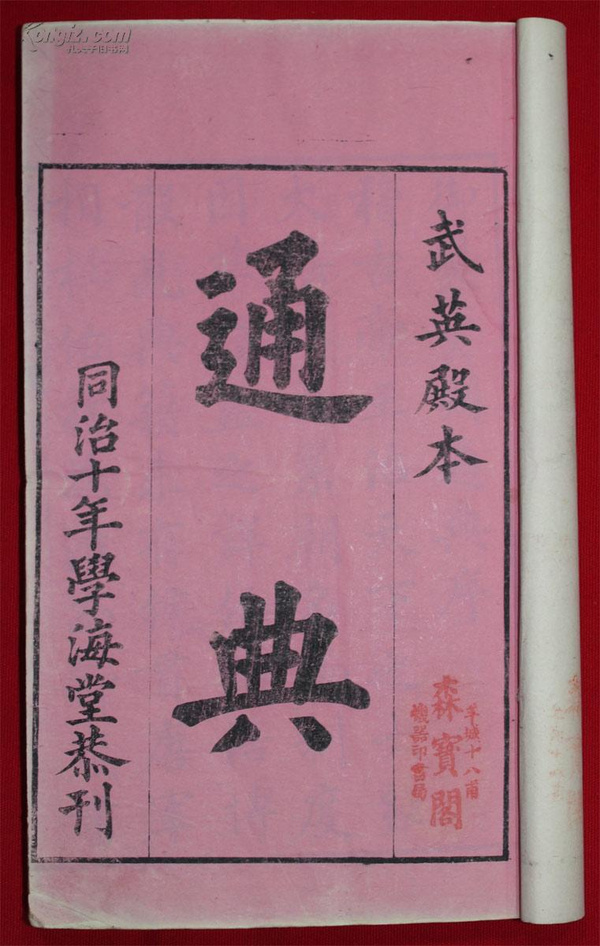 武英殿本
通典
同治十年學海堂恭刊
羊城十八甫
森寶閣
機器印書局
Kongfz.com
孔夫子旧书网